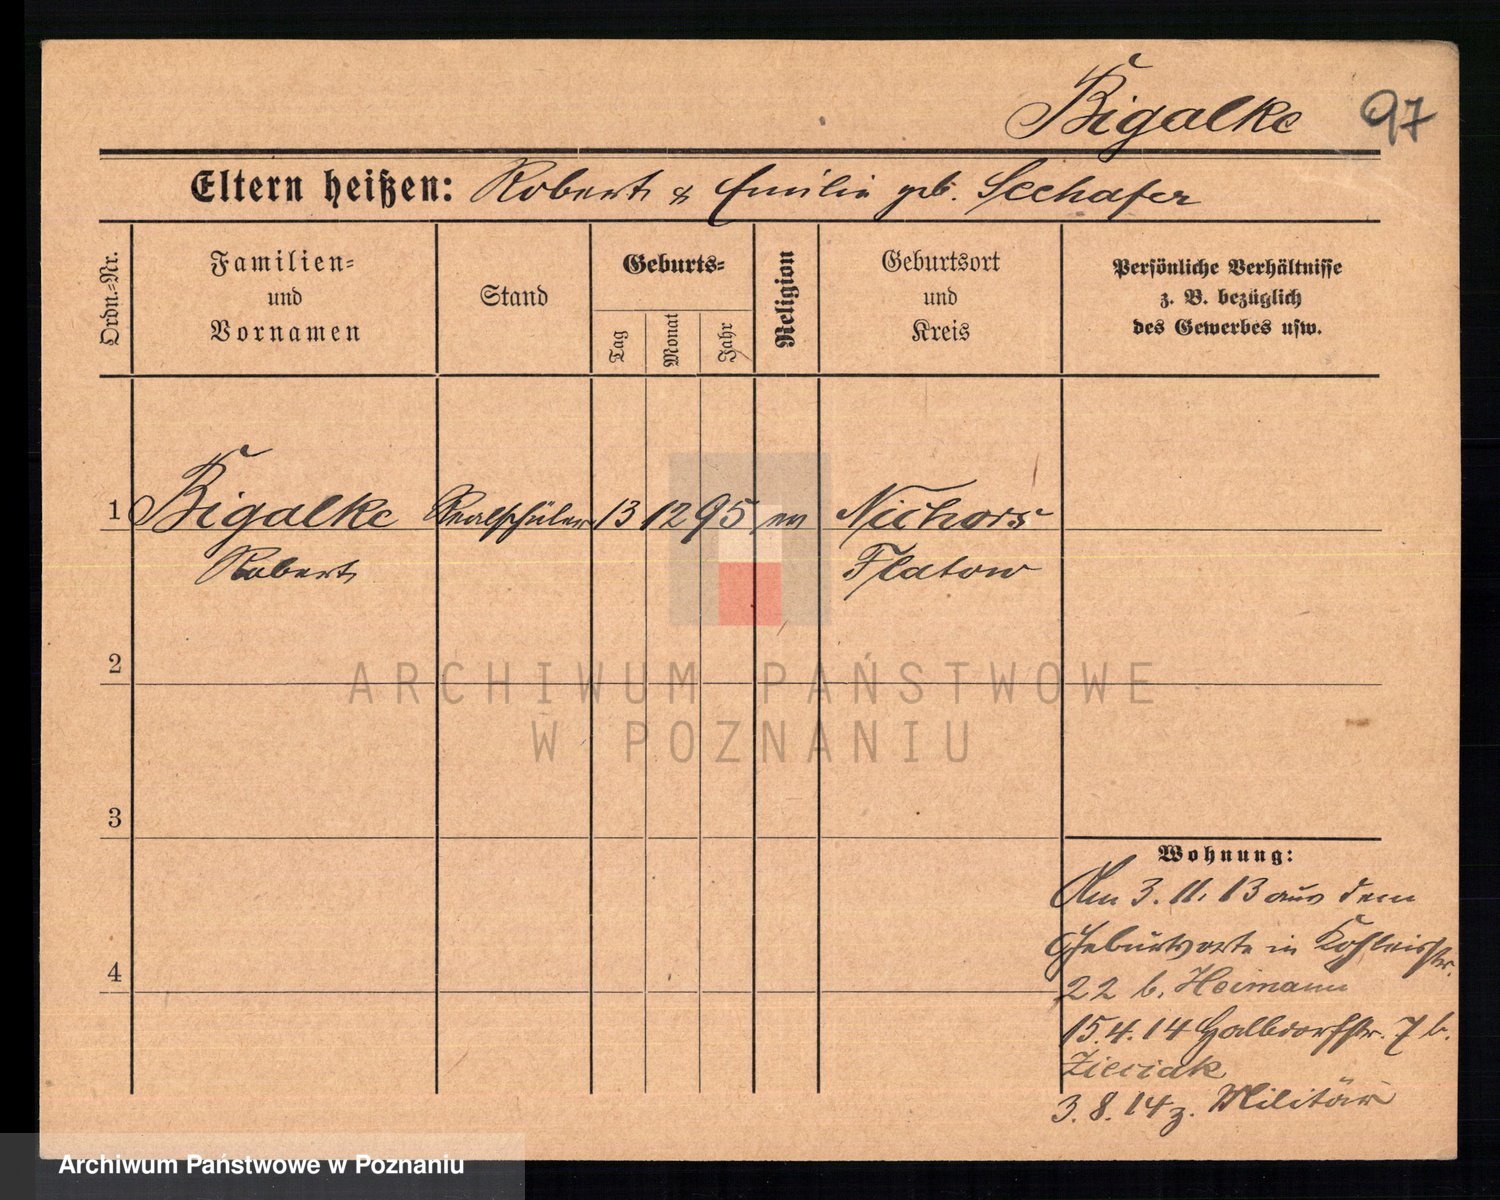 Bigalke 97
Eltern heißen: Robert & Emilie geb. Seehafer
Ordn.-Nr.
Familien-
und
Vornamen
Stand
Geburts-
Tag
Monat
Jahr
Religion
Geburtsort
und
Kreis
Persönliche Verhältnisse
z. B. bezüglich
des Gewerbes usw.
1 Bigalke Realschüler 13 12 95 ev Nichors
Robert Flatow
ARCHIWUM PAŃSTWOWE
W POZNANIU
2
3
4
Wohnung:
Am 3. 11. 13 aus dem
Geburtsorte in
22 b. Heimann
15.4.14 Halbdorfstr. 7 b.
Zieciak
3.8.14 z. Militär
Archiwum Państwowe w Poznaniu